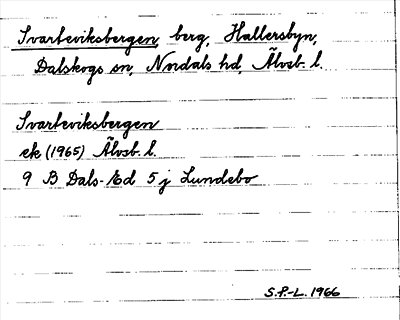 Svarteviksbergen, berg, Hallersbyn,
Dalskogs sn, Nordals hd, Älvsb. l.
Svarteviksbergen
ek (1965) Älvsb. l.
9 B Dals-Ed 5 j Lundebo
S.P.-L. 1966